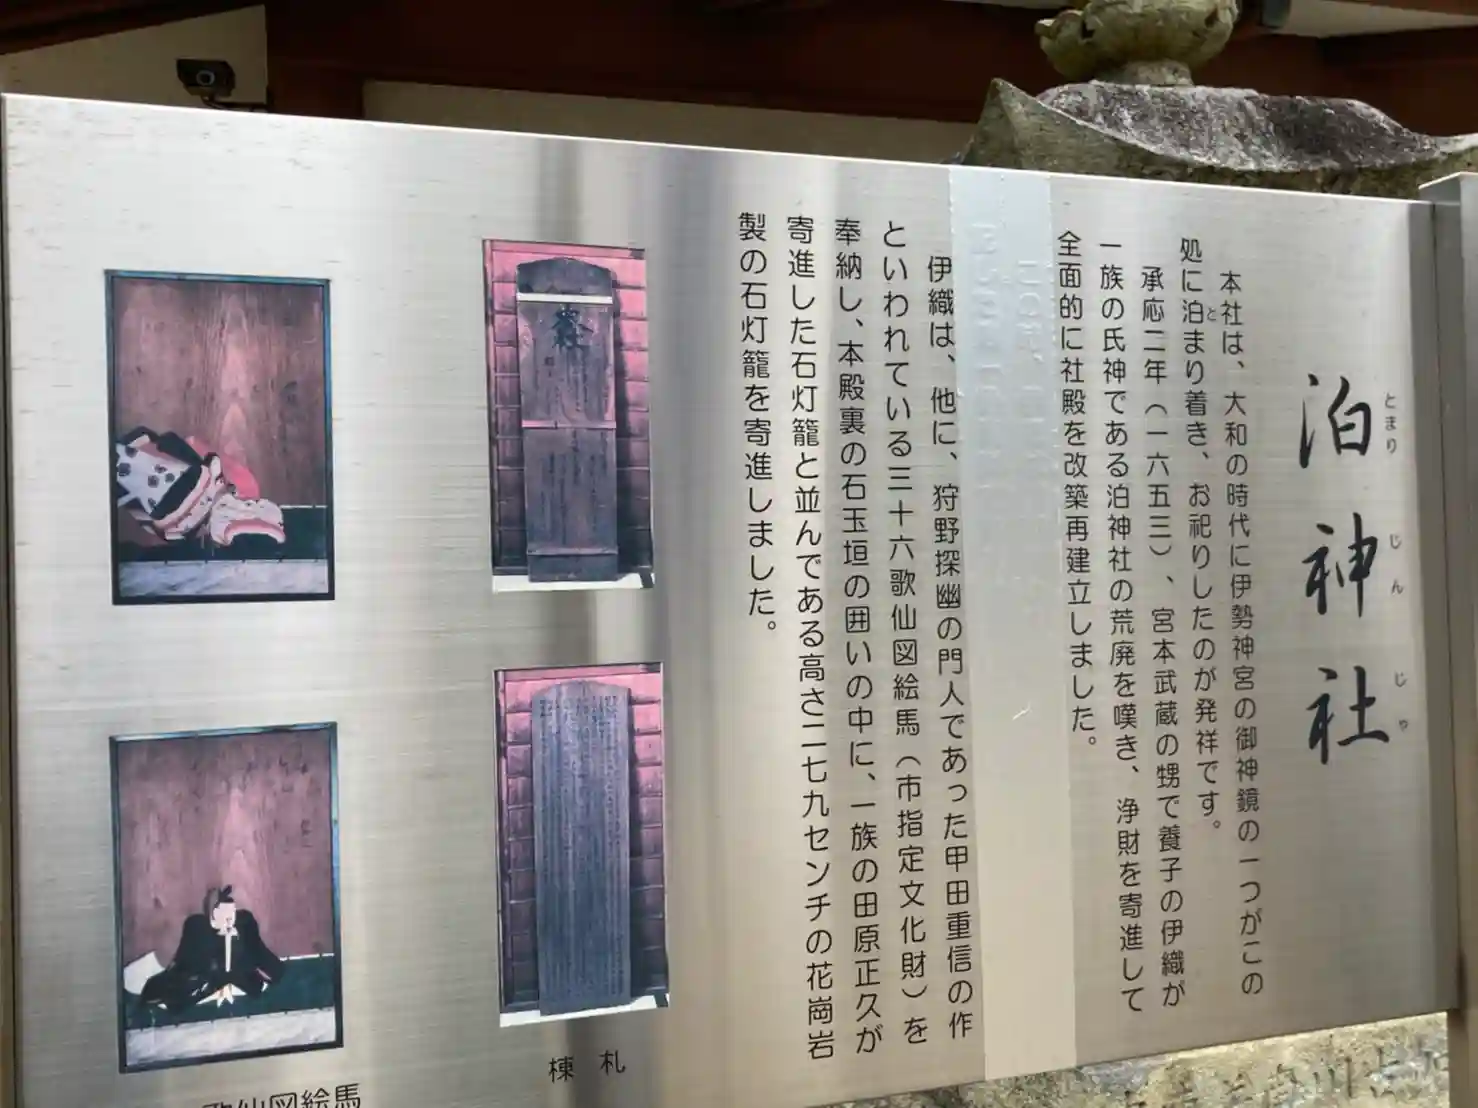 泊神社
とまりじんじゃ
本社は、大和の時代に伊勢神宮の御神鏡の一つがこの
処に泊まり着き、お祀りしたのが発祥です。
と
承応二年（一六五三）、宮本武蔵の甥で養子の伊織が
一族の氏神である泊神社の荒廃を嘆き、浄財を寄進して
全面的に社殿を改築再建立しました。
伊織は、他に、狩野探幽の門人であった甲田重信の作
といわれている三十六歌仙図絵馬（市指定文化財）を
奉納し、本殿裏の石玉垣の囲いの中に、一族の田原正久が
寄進した石灯籠と並んである高さ二七九センチの花崗岩
製の石灯籠を寄進しました。
棟札
歌仙図絵馬